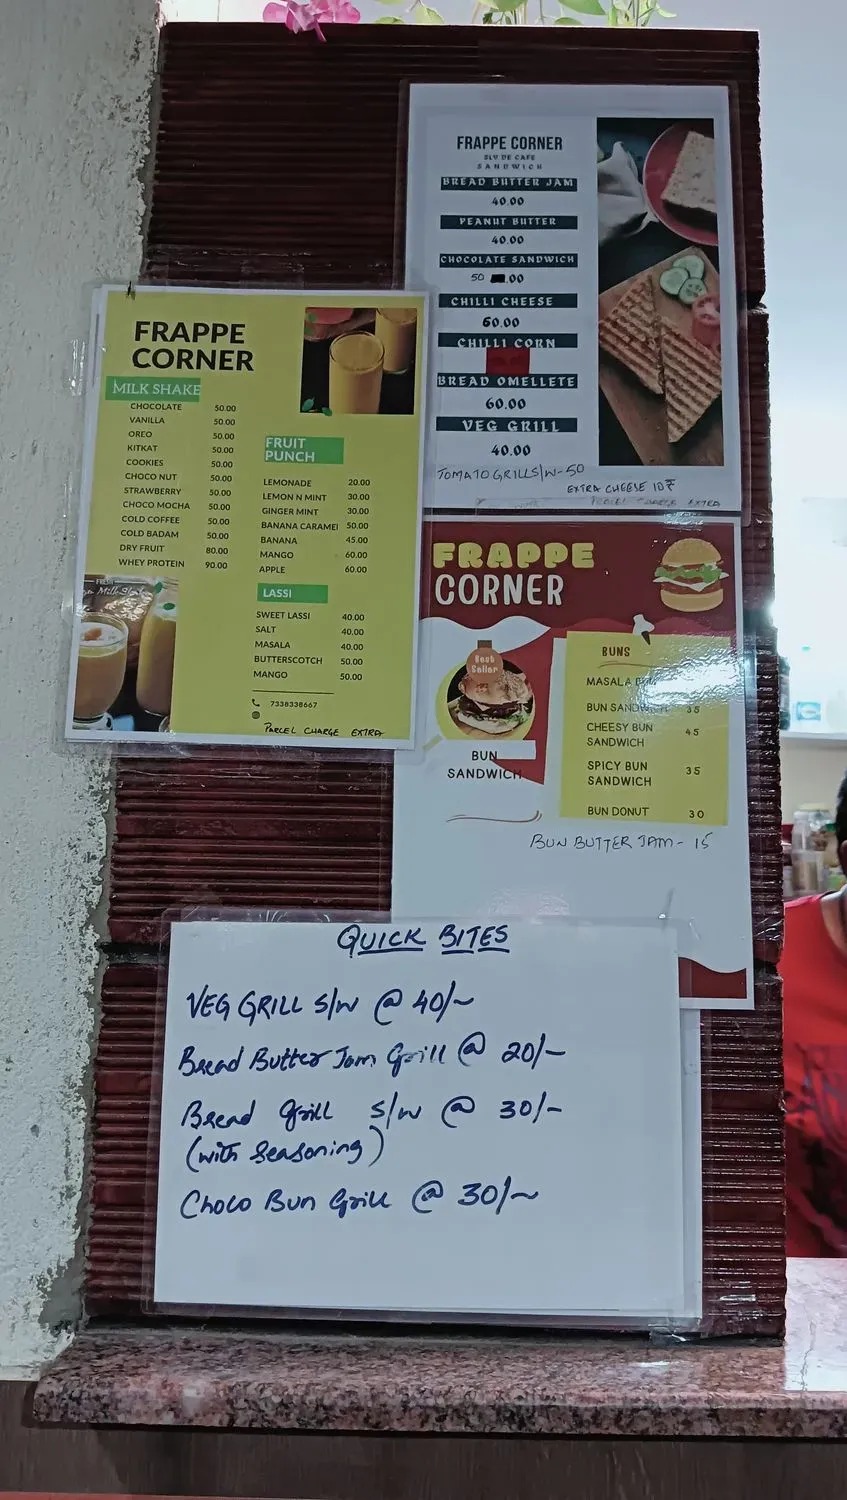 FRAPPE CORNER
SLV DE CAFE
SANDWICH
BREAD BUTTER JAM
40.00
PEANUT BUTTER
40.00
CHOCOLATE SANDWICH
50 .00
CHILLI CHEESE
60.00
CHILLI CORN
BREAD OMELLETE
60.00
VEG GRILL
40.00
TOMATO GRILL S/W - 50
EXTRA CHEESE 10₹
PARCEL CHARGE EXTRA
FRAPPE
CORNER
MILK SHAKE
CHOCOLATE 50.00
VANILLA 50.00
OREO 50.00
KITKAT 50.00
COOKIES 50.00
CHOCO NUT 50.00
STRAWBERRY 50.00
CHOCO MOCHA 50.00
COLD COFFEE 50.00
COLD BADAM 50.00
DRY FRUIT 80.00
WHEY PROTEIN 90.00
FRESH
Milk Shake
FRUIT
PUNCH
LEMONADE 20.00
LEMON N MINT 30.00
GINGER MINT 30.00
BANANA CARAMEL 50.00
BANANA 45.00
MANGO 60.00
APPLE 60.00
LASSI
SWEET LASSI 40.00
SALT 40.00
MASALA 40.00
BUTTERSCOTCH 50.00
MANGO 50.00
7338338667
PARCEL CHARGE EXTRA
FRAPPE
CORNER
Best
Seller
BUN
SANDWICH
BUNS
MASALA
BUN SANDWICH 35
CHEESY BUN
SANDWICH 45
SPICY BUN
SANDWICH 35
BUN DONUT 30
BUN BUTTER JAM - 15
QUICK BITES
VEG GRILL S/W @ 40/~
Bread Butter Jam Grill @ 20/~
Bread Grill S/W @ 30/~
(with Seasoning)
Choco Bun Grill @ 30/~